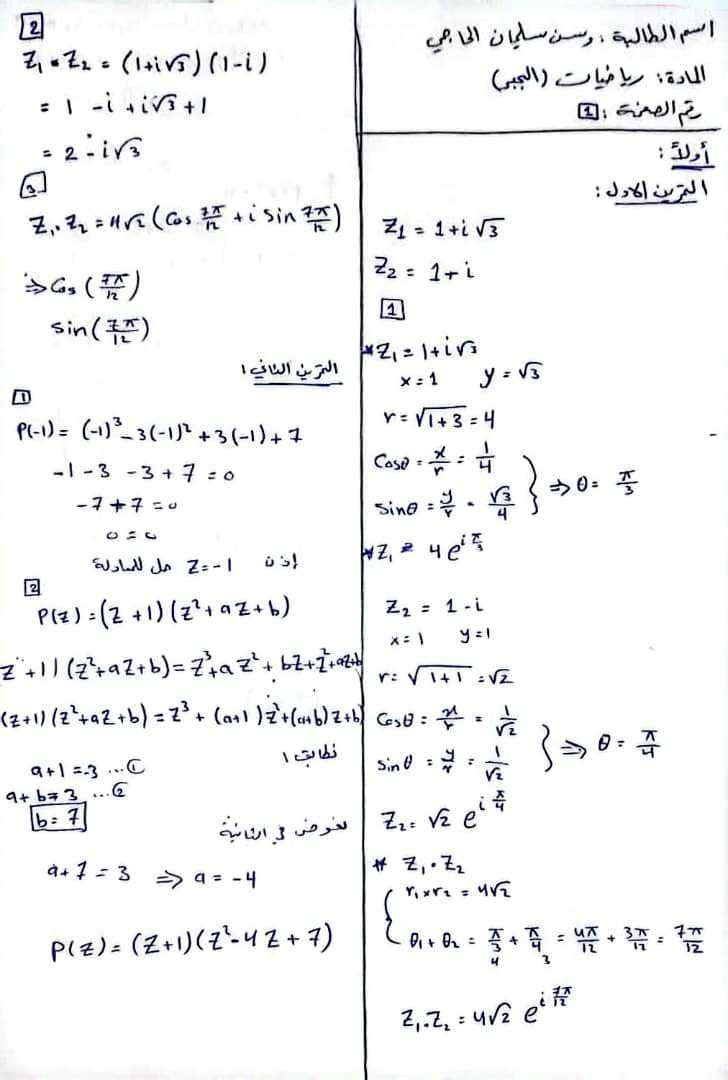 اسم الطالبة : وسن سليمان الحاجي
المادة: رياضيات (الجبر)
رقم الصفحة : 1
أولاً :
التمرين الاول :
Z₁ = 1+i√3
Z₂ = 1+i
1
*Z₁ = 1+i√3
x=1 y=√3
r=√1+3 = 4
Cosθ = x/r = 1/4
Sinθ = y/r = √3/4 } ⇒ θ = π/3
*Z₁ = 4e^(iπ/3)
Z₂ = 1-i
x=1 y=1
r= √1+1 = √2
Cosθ = x/r = 1/√2
Sinθ = y/r = 1/√2 } ⇒ θ = π/4
Z₂= √2 e^(iπ/4)
* Z₁.Z₂
{ r₁×r₂ = 4√2
θ₁+θ₂ = π/3 + π/4 = 4π/12 + 3π/12 = 7π/12
4 3
Z₁.Z₂ = 4√2 e^(i7π/12)
2
Z₁.Z₂ = (1+i√3)(1-i)
= 1 -i +i√3+1
= 2-i√3
3
Z₁.Z₂ = 4√2 (Cos 7π/12 + i Sin 7π/12)
⇒ Cos (7π/12)
sin (7π/12)
التمرين الثاني :
1
P(-1) = (-1)³-3(-1)²+3(-1)+7
-1-3 -3+7 = 0
-7+7=0
0=0
إذن Z=-1 حل للمعادلة
2
P(z) = (Z+1)(Z²+aZ+b)
Z+1)(Z²+aZ+b) = Z³+aZ²+bZ+Z²+aZ+b
(Z+1)(Z²+aZ+b) = Z³+(a+1)Z²+(a+b)Z+b
نطابق :
a+1=-3 ...①
a+b=3 ...②
b=7
نعوض في الثانية
a+7=3 ⇒ a=-4
P(Z) = (Z+1)(Z²-4Z+7)